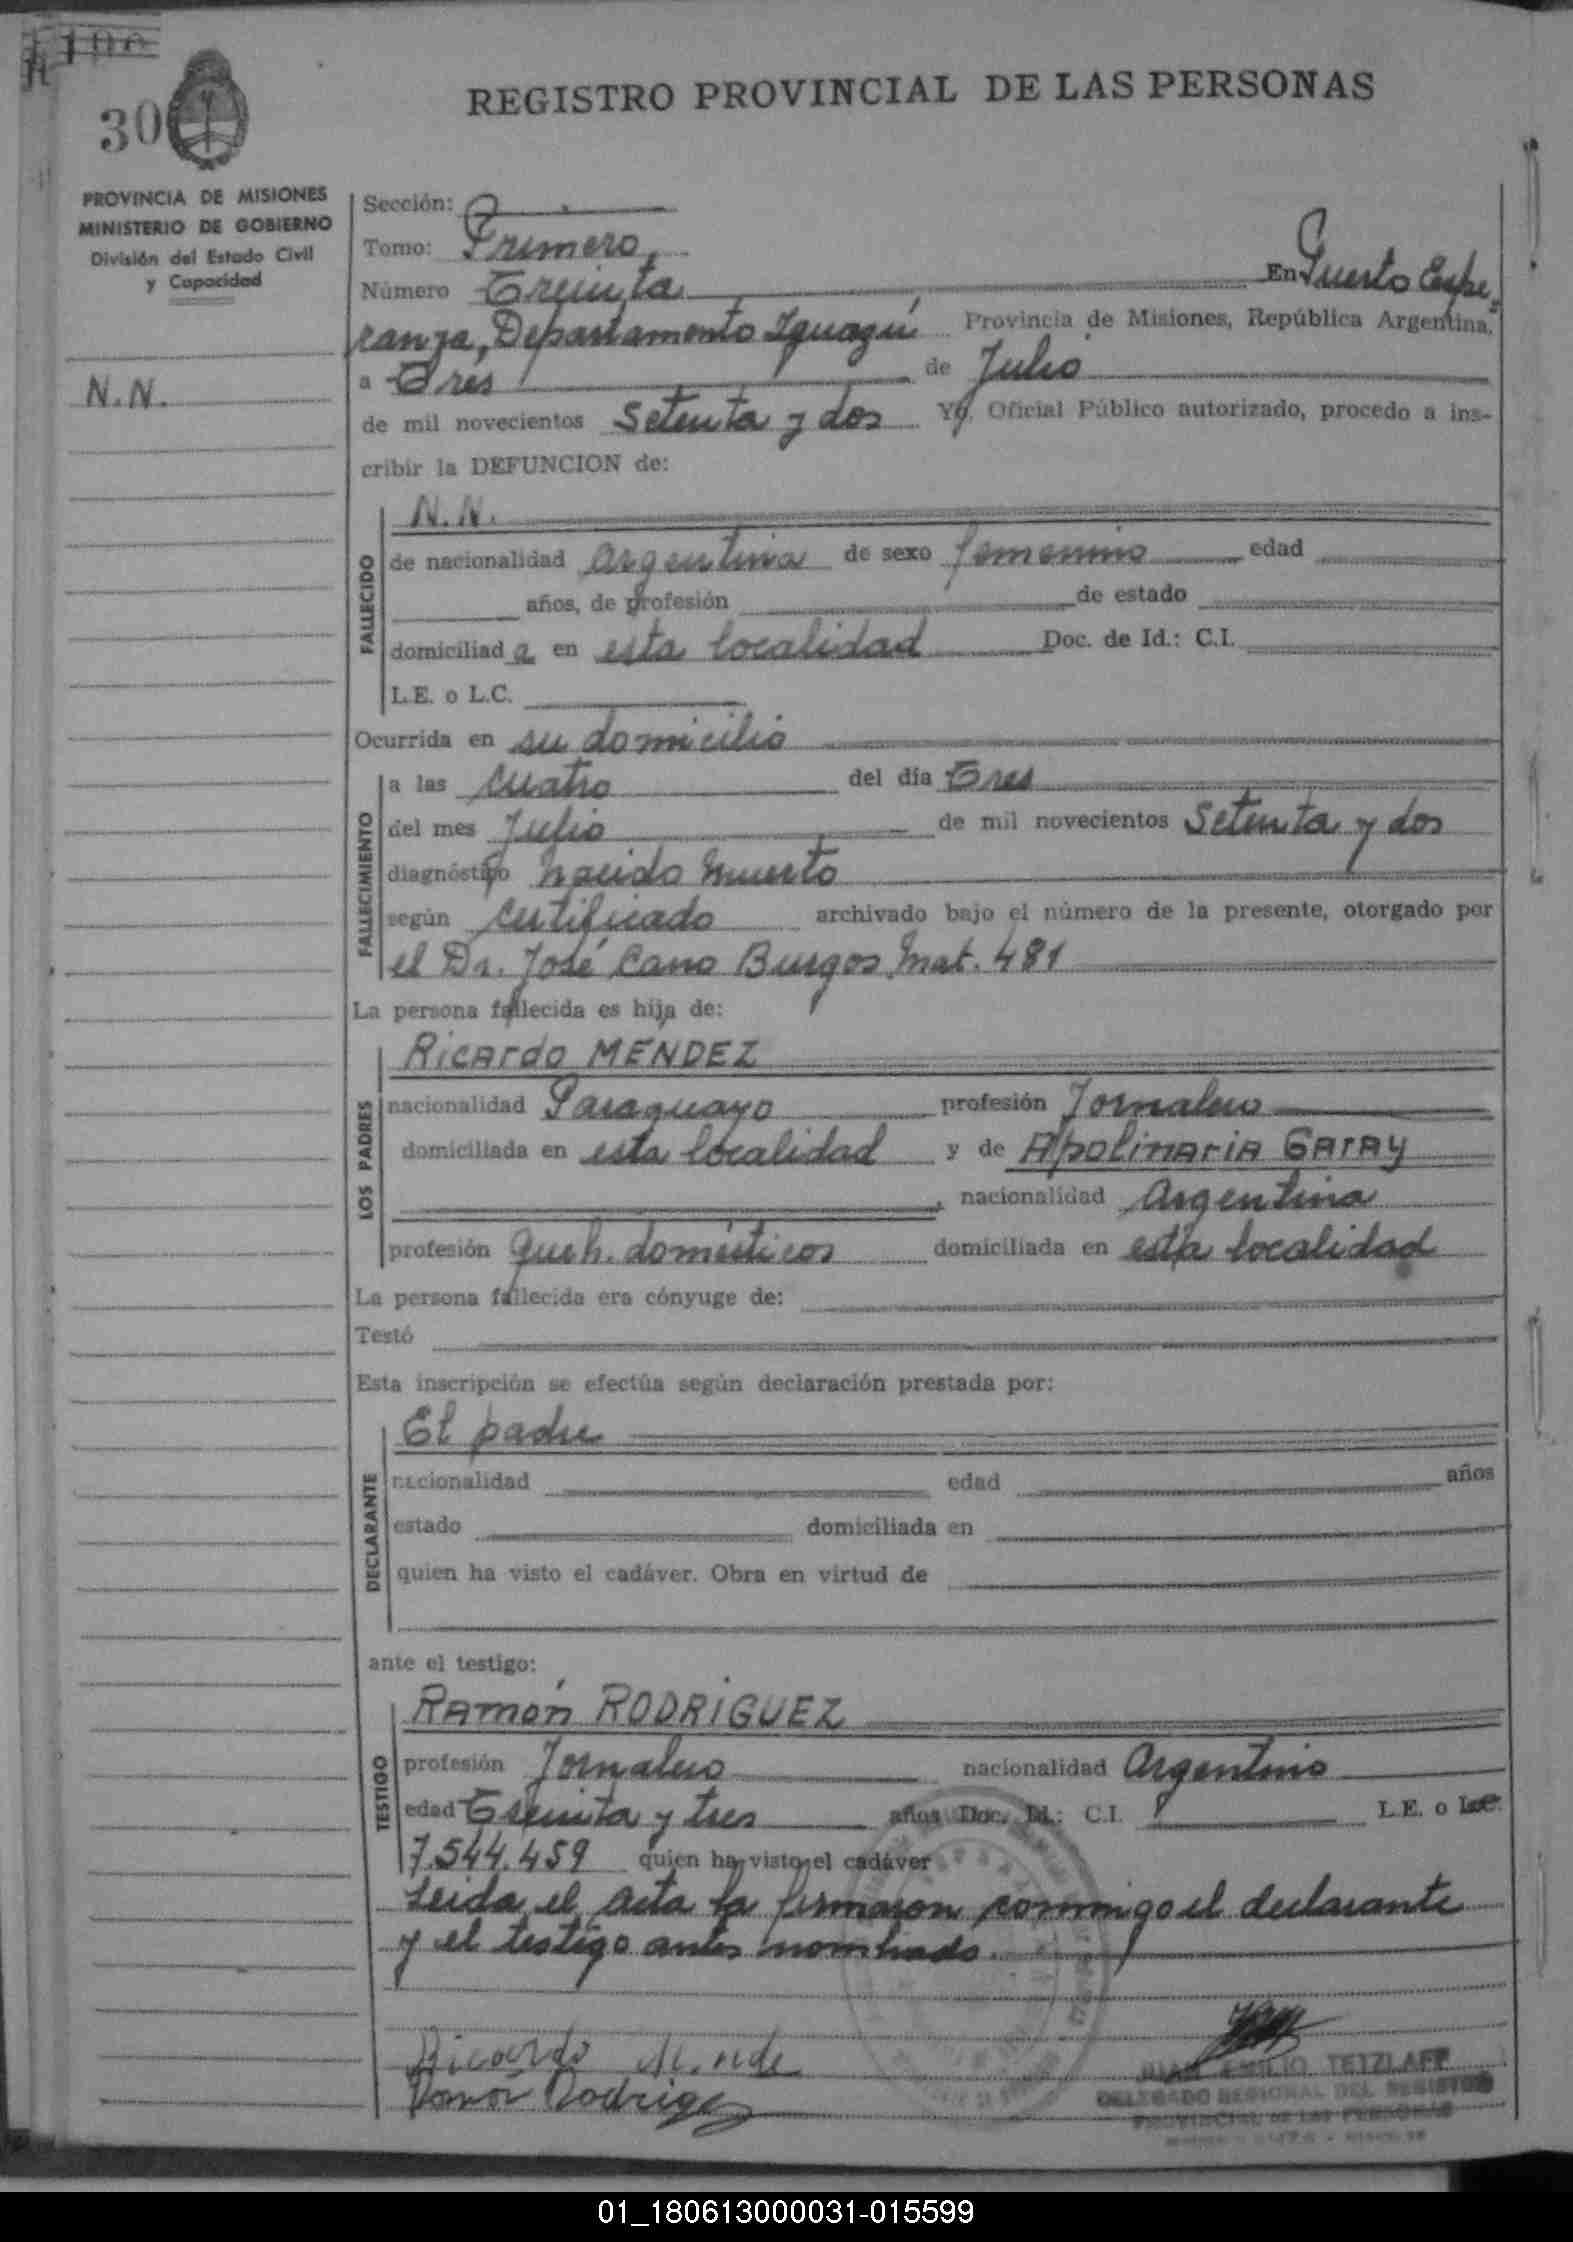 30
REGISTRO PROVINCIAL DE LAS PERSONAS
PROVINCIA DE MISIONES
MINISTERIO DE GOBIERNO
División del Estado Civil
y Capacidad
N.N.
Sección:
Tomo: Primero
Número Treinta En Puerto Espe-
ranza, Departamento Iguazú Provincia de Misiones, República Argentina,
a Tres de Julio
de mil novecientos Setenta y dos Yo, Oficial Público autorizado, procedo a ins-
cribir la DEFUNCION de:
FALLECIDO
N.N.
de nacionalidad argentina de sexo femenino edad
años, de profesión de estado
domiciliad a en esta localidad Doc. de Id.: C.I.
L.E. o L.C.
Ocurrida en su domicilio
FALLECIMIENTO
a las cuatro del día Tres
del mes Julio de mil novecientos Setenta y dos
diagnóstico nacido muerto
según certificado archivado bajo el número de la presente, otorgado por
el Dr. José Cano Burgos Mat. 481
La persona fallecida es hija de:
LOS PADRES
Ricardo MENDEZ
nacionalidad Paraguayo profesión Jornalero
domiciliada en esta localidad y de Apolinaria GARAY
, nacionalidad Argentina
profesión queh. domésticos domiciliada en esta localidad
La persona fallecida era cónyuge de:
Testó
Esta inscripción se efectúa según declaración prestada por:
DECLARANTE
El padre
nacionalidad edad años
estado domiciliada en
quien ha visto el cadáver. Obra en virtud de
ante el testigo:
TESTIGO
Ramón RODRIGUEZ
profesión Jornalero nacionalidad Argentino
edad Treinta y tres años Doc. Id.: C.I. L.E. o
7.544.459 quien ha visto el cadáver
Leida el acta la firmaron conmigo el declarante
y el testigo antes nombrado.
Ricardo
Ramón Rodrigez
JUAN EMILIO TETZLAFF
DELEGADO REGIONAL DEL REGISTRO
PROVINCIAL DE LAS PERSONAS
01_180613000031-015599